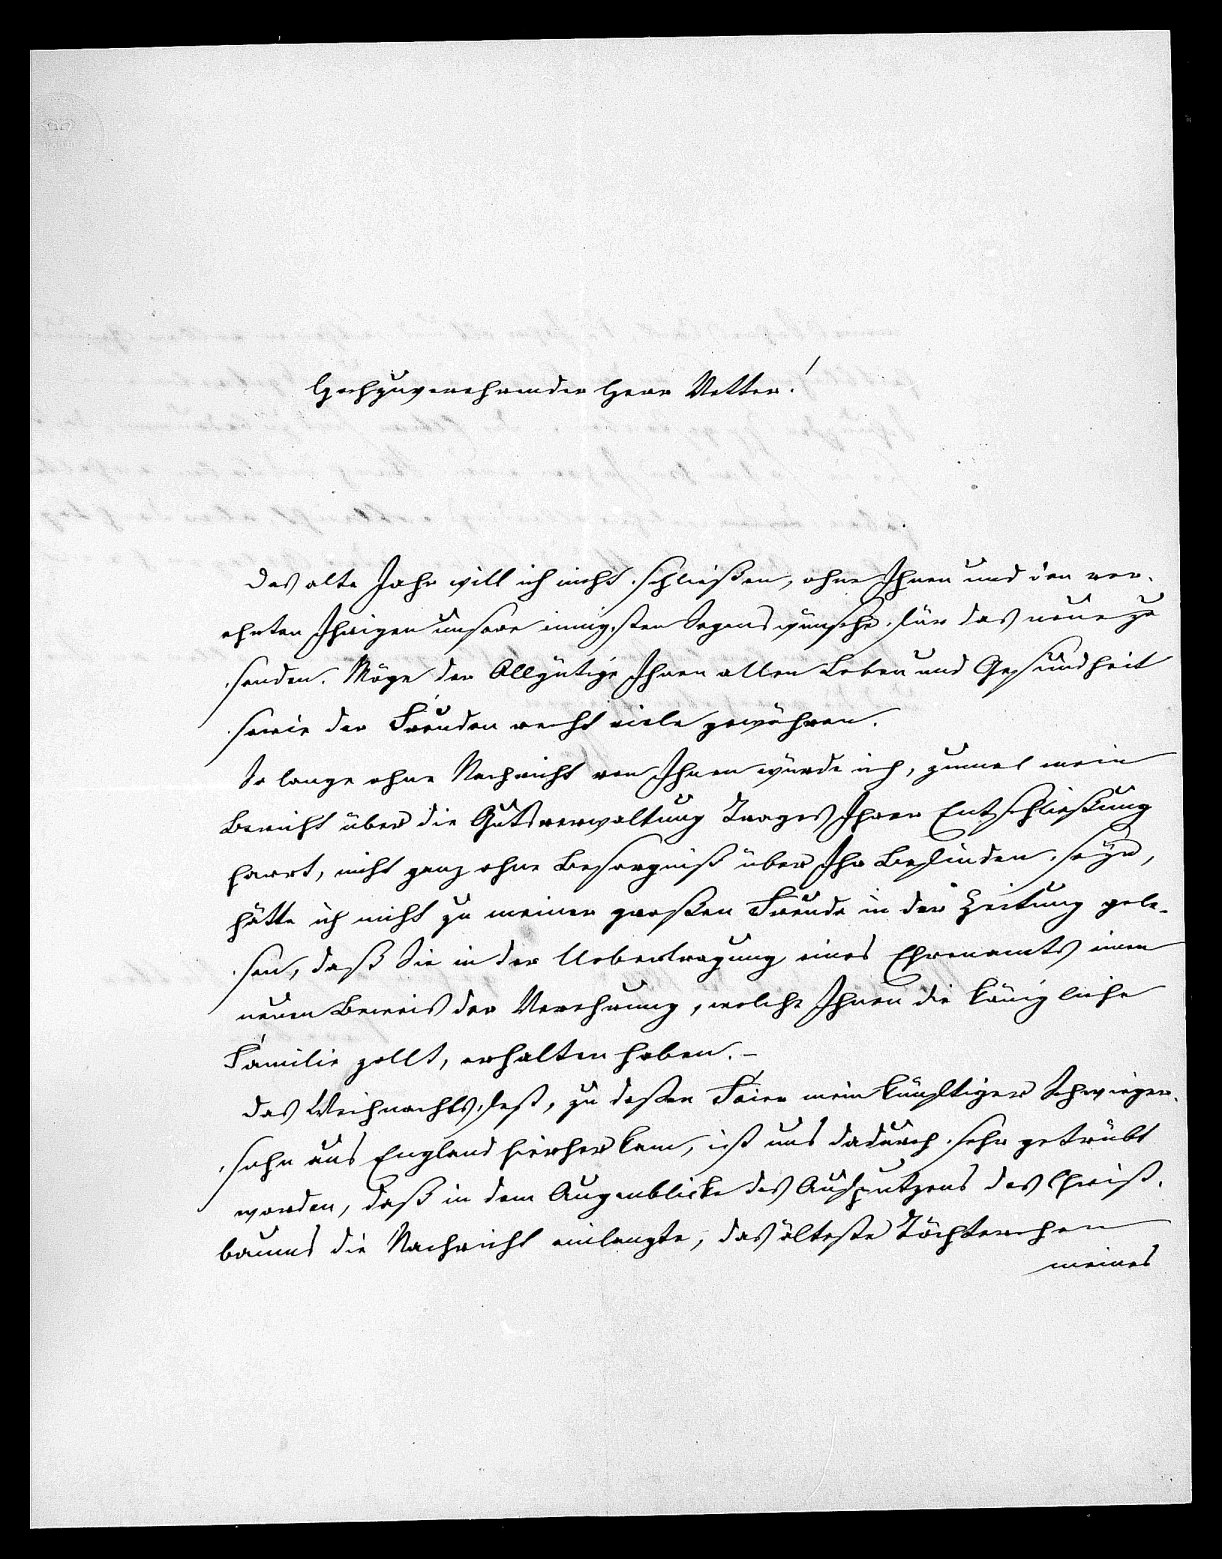 Hochzuverehrender Herr Vetter!
Das alte Jahr will ich nicht schließen, ohne Ihnen und den ver-
ehrten Ihrigen unsere innigsten Segenswünsche für das neue zu
senden. Möge der Allgütige Ihnen allen Leben und Gesundheit
sowie der Freuden recht viele gewähren.
So lange ohne Nachricht von Ihnen würde ich, zumal mein
Bericht über die Gutsverwaltung Trages Ihrer Entschließung
harrt, nicht ganz ohne Besorgniß über Ihr Befinden seyn,
hätte ich nicht zu meiner großen Freude in der Zeitung gele-
sen, daß Sie in der Uebertragung eines Ehrenamts einen
neuen Beweis der Verehrung, welche Ihnen die königliche
Familie zollt, erhalten haben. –
Das Weihnachtsfest, zu deßen Feier mein künftiger Schwieger-
sohn aus England hierher kam, ist uns dadurch sehr getrübt
worden, daß in dem Augenblicke des Ausputzens des Christ-
baums die Nachricht einlangte, das älteste Töchterchen
meines